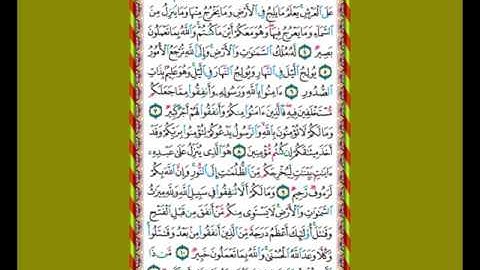 عَلَى ٱلْعَرْشِ يَعْلَمُ مَا يَلِجُ فِى ٱلْأَرْضِ وَمَا يَخْرُجُ مِنْهَا وَمَا يَنزِلُ مِنَ
ٱلسَّمَآءِ وَمَا يَعْرُجُ فِيهَا وَهُوَ مَعَكُمْ أَيْنَ مَا كُنتُمْ وَٱللَّهُ بِمَا تَعْمَلُونَ
بَصِيرٌ ٤ لَّهُۥ مُلْكُ ٱلسَّمَٰوَٰتِ وَٱلْأَرْضِ وَإِلَى ٱللَّهِ تُرْجَعُ ٱلْأُمُورُ
٥ يُولِجُ ٱلَّيْلَ فِى ٱلنَّهَارِ وَيُولِجُ ٱلنَّهَارَ فِى ٱلَّيْلِ وَهُوَ عَلِيمٌۢ بِذَاتِ
ٱلصُّدُورِ ٦ ءَامِنُوا۟ بِٱللَّهِ وَرَسُولِهِۦ وَأَنفِقُوا۟ مِمَّا جَعَلَكُم
مُّسْتَخْلَفِينَ فِيهِ فَٱلَّذِينَ ءَامَنُوا۟ مِنكُمْ وَأَنفَقُوا۟ لَهُمْ أَجْرٌ كَبِيرٌ ٧
وَمَا لَكُمْ لَا تُؤْمِنُونَ بِٱللَّهِ وَٱلرَّسُولُ يَدْعُوكُمْ لِتُؤْمِنُوا۟ بِرَبِّكُمْ وَقَدْ
أَخَذَ مِيثَٰقَكُمْ إِن كُنتُم مُّؤْمِنِينَ ٨ هُوَ ٱلَّذِى يُنَزِّلُ عَلَىٰ عَبْدِهِۦٓ
ءَايَٰتٍۭ بَيِّنَٰتٍ لِّيُخْرِجَكُم مِّنَ ٱلظُّلُمَٰتِ إِلَى ٱلنُّورِ وَإِنَّ ٱللَّهَ بِكُمْ
لَرَءُوفٌ رَّحِيمٌ ٩ وَمَا لَكُمْ أَلَّا تُنفِقُوا۟ فِى سَبِيلِ ٱللَّهِ وَلِلَّهِ مِيرَٰثُ
ٱلسَّمَٰوَٰتِ وَٱلْأَرْضِ لَا يَسْتَوِى مِنكُم مَّنْ أَنفَقَ مِن قَبْلِ ٱلْفَتْحِ
وَقَٰتَلَ أُو۟لَٰٓئِكَ أَعْظَمُ دَرَجَةً مِّنَ ٱلَّذِينَ أَنفَقُوا۟ مِنۢ بَعْدُ وَقَٰتَلُوا۟
وَكُلًّا وَعَدَ ٱللَّهُ ٱلْحُسْنَىٰ وَٱللَّهُ بِمَا تَعْمَلُونَ خَبِيرٌ ١٠ مَّن ذَا